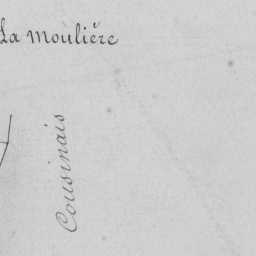 La Moulière
Cousinais